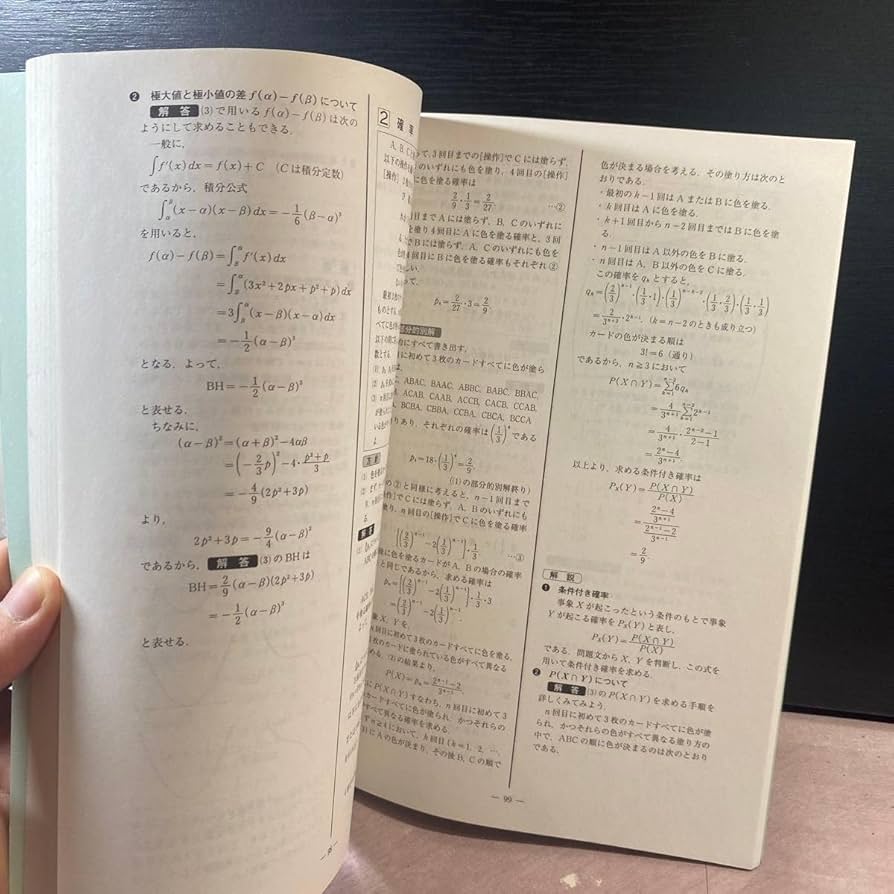 ❷ 極大値と極小値の差 f(α)−f(β)について
解答 (3)で用いる f(α)−f(β)は次の
ようにして求めることもできる.
一般に,
∫f'(x)dx=f(x)+C (Cは積分定数)
であるから, 積分公式
∫_α^β(x−α)(x−β)dx=−1/6(β−α)³
を用いると,
f(α)−f(β)=∫_β^α f'(x)dx
=∫_β^α(3x²+2px+p²+p)dx
=3∫_β^α(x−β)(x−α)dx
=−1/2(α−β)³
となる. よって,
BH=−1/2(α−β)³
と表せる.
ちなみに,
(α−β)²=(α+β)²−4αβ
=(−2/3 p)²−4・(p²+p)/3
=−4/9(2p²+3p)
より,
2p²+3p=−9/4(α−β)²
であるから, 解答 (3)のBHは
BH=2/9(α−β)(2p²+3p)
=−1/2(α−β)³
と表せる.
2 確率
A, B, C
以下の
[操作]
て, 3回目までの[操作]でCには塗らず,
のいずれにも色を塗り, 4回目の[操作]
に色を塗る確率は
2/9・1/3=2/27. …②
目までAには塗らず, B, Cのいずれに
を塗り4回目にAに色を塗る確率と, 3回
でBには塗らず, A, Cのいずれにも色を
4回目にBに色を塗る確率もそれぞれ②
しい.
て,
p₄=2/27・3=2/9.
部分的別解
的にすべて書き出す.
に初めて3枚のカードすべてに色が塗ら
は,
, ABAC, BAAC, ABBC, BABC, BBAC,
, ACAB, CAAB, ACCB, CACB, CCAB,
, BCBA, CBBA, CCBA, CBCA, BCCA
りあり, それぞれの確率は(1/3)⁴である
p₄=18・(1/3)⁴=2/9.
((1)の部分的別解終り)
の②と同様に考えると, n−1回目まで
操作]でCには塗らず, A, Bのいずれにも
塗り, n回目の[操作]でCに色を塗る確率
[(2/3)ⁿ⁻¹−2(1/3)ⁿ⁻¹]・1/3. …③
に色を塗るカードがA, Bの場合の確率
と同じであるから, 求める確率は
pₙ=[(2/3)ⁿ⁻¹−2(1/3)ⁿ⁻¹]・1/3・3
=(2/3)ⁿ⁻¹−2(1/3)ⁿ⁻¹.
象X, Yを,
回目に初めて3枚のカードすべてに色を塗る,
枚のカードに塗られている色がすべて異なる
める. (2)の結果より,
P(X)=pₙ=(2ⁿ⁻¹−2)/3ⁿ⁻¹.
にP(X∩Y)すなわち, n回目に初めて3
カードすべてに色が塗られ, かつそれらの
すべて異なる確率を求める.
n≧4において, k回目(k=1, 2, …,
)にAの色が決まり, その後B, Cの順で
色が決まる場合を考える. その塗り方は次のと
おりである.
・最初のk−1回はAまたはBに色を塗る.
・k回目はAに色を塗る.
・k+1回目からn−2回目まではBに色を塗
る.
・n−1回目はA以外の色をBに塗る.
・n回目はA, B以外の色をCに塗る.
この確率をqₖとすると,
qₖ=(2/3)ᵏ⁻¹・(1/3・1)・(1/3)ⁿ⁻ᵏ⁻²・(1/3・2/3)・(1/3・1/3)
=2/3ⁿ⁺²・2ᵏ⁻¹. (k=n−2のときも成り立つ)
カードの色が決まる順は
3!=6(通り)
であるから, n≧3において
P(X∩Y)=Σ_{k=1}^{n−2}6qₖ
=4/3ⁿ⁺¹ Σ_{k=1}^{n−2}2ᵏ⁻¹
=4/3ⁿ⁺¹・(2ⁿ⁻²−1)/(2−1)
=(2ⁿ−4)/3ⁿ⁺¹.
以上より, 求める条件付き確率は
Pₓ(Y)=P(X∩Y)/P(X)
=((2ⁿ−4)/3ⁿ⁺¹)/((2ⁿ⁻¹−2)/3ⁿ⁻¹)
=2/9.
解説
❶ 条件付き確率
事象Xが起こったという条件のもとで事象
Yが起こる確率をPₓ(Y)と表し,
Pₓ(Y)=P(X∩Y)/P(X)
である. 問題文からX, Yを判断し, この式を
用いて条件付き確率を求める.
❷ P(X∩Y)について
解答 (3)のP(X∩Y)を求める手順を
詳しくみてみよう.
n回目に初めて3枚のカードすべてに色が塗
られ, かつそれらの色がすべて異なる塗り方の
中で, ABCの順に色が決まるのは次のとおり
である.
— 99 —